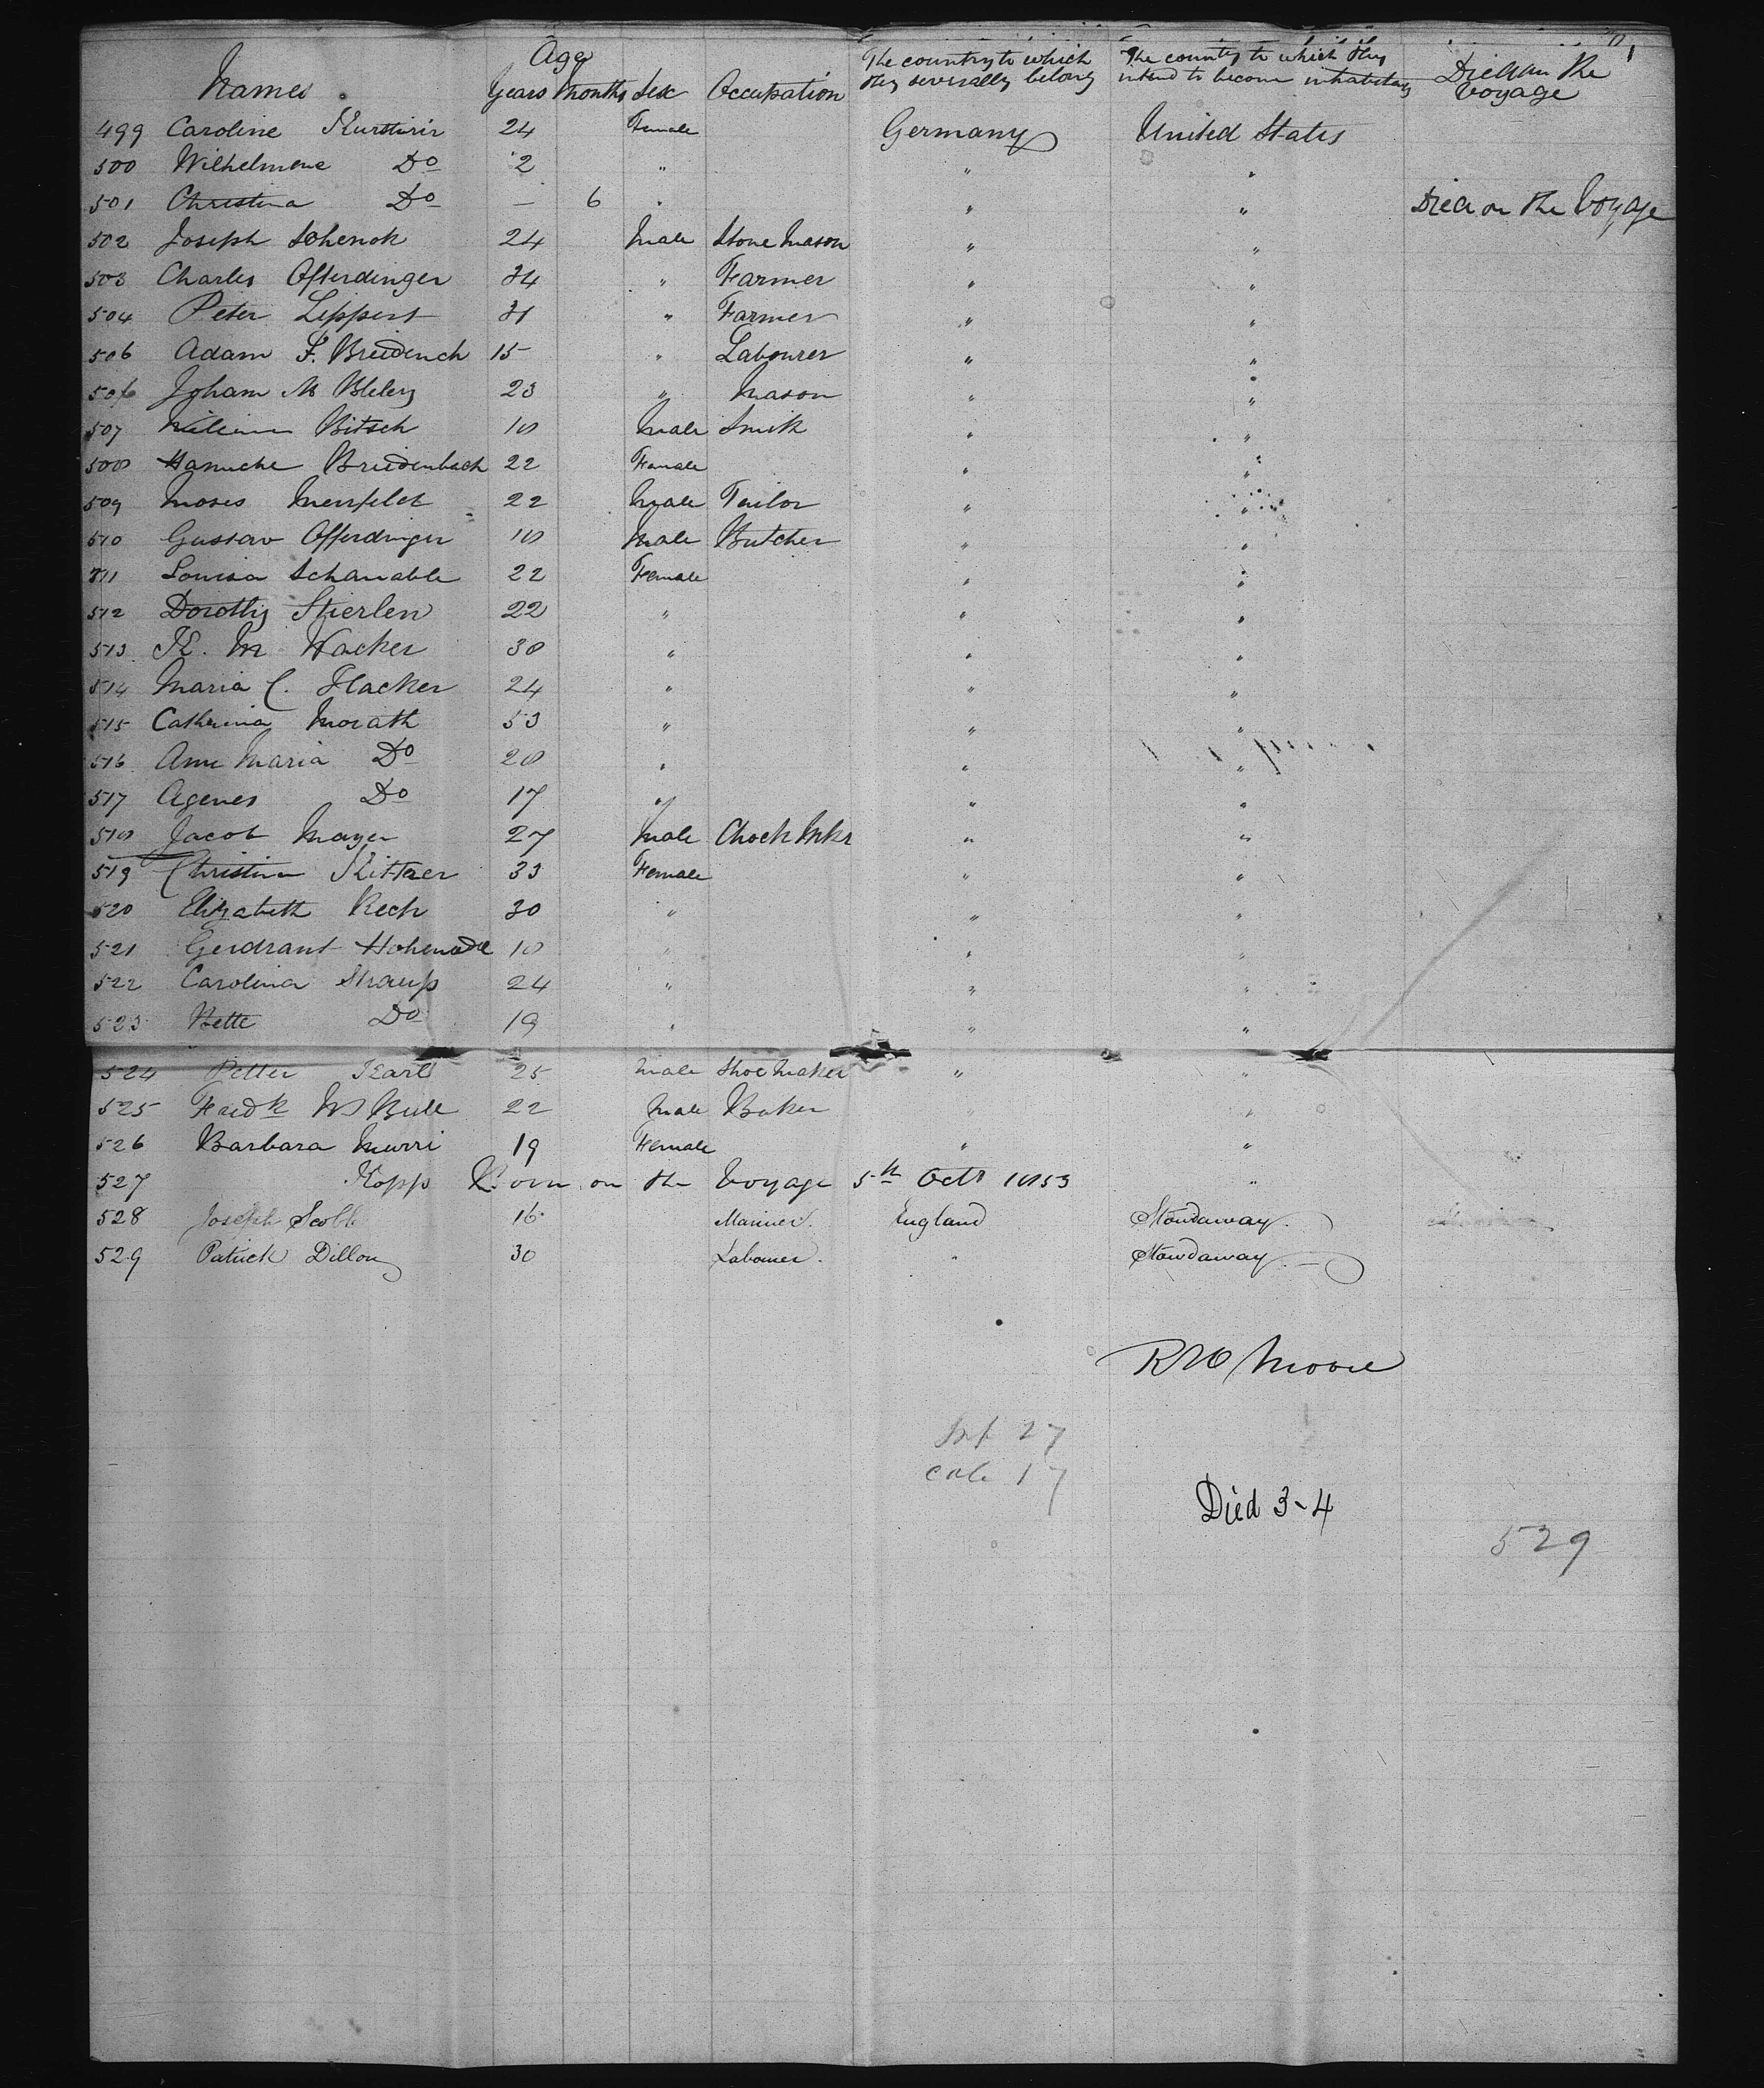 Names Age Years Months Sex Occupation The country to which they severally belong The country to which they intend to become inhabitants Died on the Voyage
499 Caroline 24 Female Germany United States
500 Wilhelmene Do 2 " " "
501 Christina Do — 6 " " " Died on the Voyage
502 Joseph Schenck 24 Male Stone Mason " "
503 Charles Offerdinger 34 " Farmer " "
504 Peter Lippert 31 " Farmer " "
506 Adam F. Breidench 15 " Labourer " "
506 Joham M 23 " Mason " "
507 Bitsch 18 Male Smith " "
508 Hannche Breidenbach 22 Female " "
509 Moses Mersfelt 22 Male Tailor " "
510 Gustav Offerdinger 18 Male Butcher " "
511 Louisa Schanable 22 Female " "
512 Dorothy Stierlen 22 " " "
513 K. M Wacker 30 " " "
514 Maria C. Hacker 24 " " "
515 Catherina Morath 53 " " "
516 Ann Maria Do 28 " " "
517 Agenes Do 17 " " "
518 Jacob Mayer 27 Male Clock Mkr " "
519 Christina Kittaer 33 Female " "
520 Elizabeth Rech 30 " " "
521 Gerdrant Hohenadel 18 " " "
522 Carolina Straup 24 " " "
523 Bette Do 19 " " "
524 Petter Karl 25 Male Shoe Maker " "
525 Fredk W Bull 22 Male Baker " "
526 Barbara Murri 19 Female " "
527 Kopp Born on the Voyage 5th Octr 1853 "
528 Joseph Scott 16 Mariner. England Stowdaway.
529 Patrick Dillon 30 Labourer. " Stowdaway.
R W Moore
Inf 27
17
Died 3-4
529